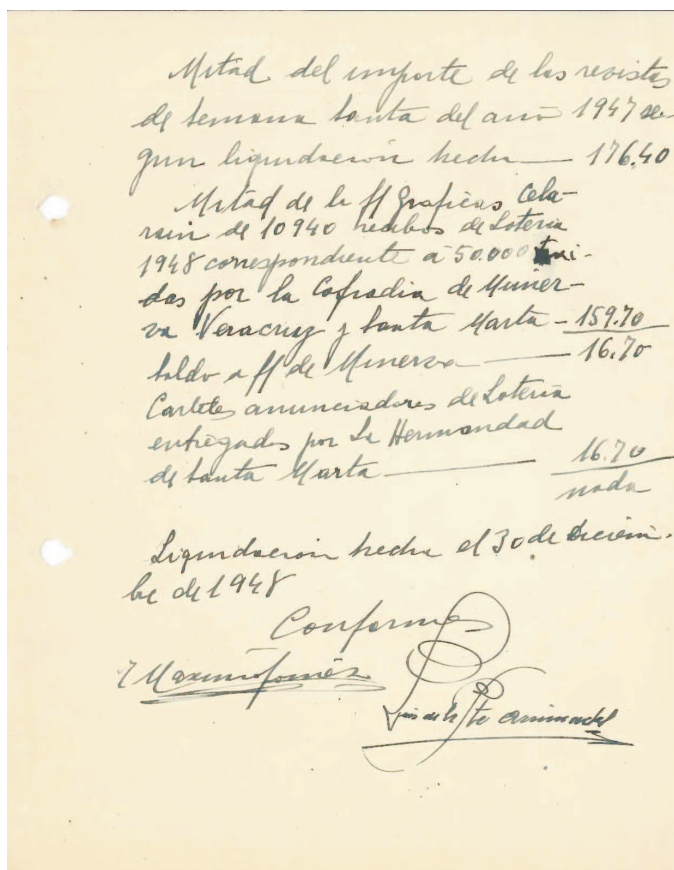 Mitad del importe de las revistas
de semana santa del año 1947 se-
gun liquidación hecha — 176.40
Mitad de la ff Graficas Cela-
rain de 10940 recibos de Loteria
1948 correspondiente a 50.000
das por la Cofradia de Miner-
va Veracruz y Santa Marta — 159.70
Saldo a ff de Minerva — 16.70
Carteles anunciadores de Loteria
entregados por la Hermandad
de Santa Marta — 16.70
nada
Liquidacion hecha el 30 de Diciem-
bre de 1948
Conformes
Maximo Gomez
Luis de